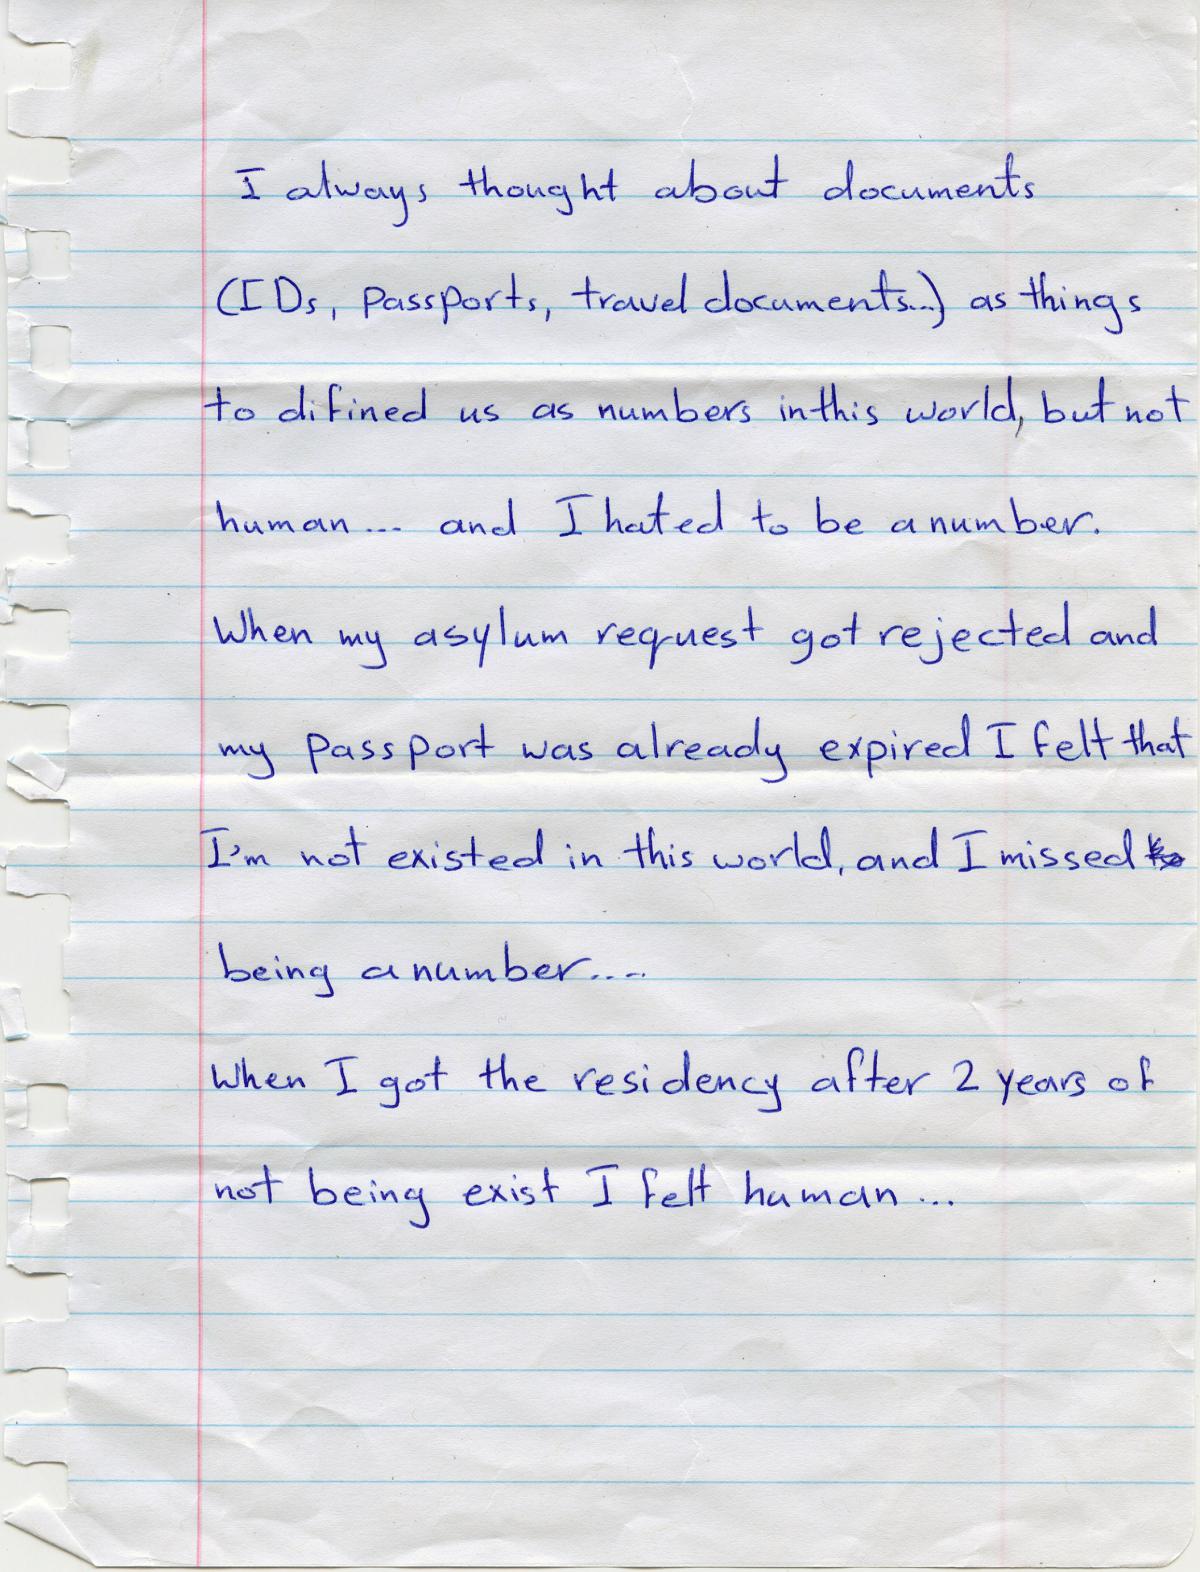 I always thought about documents
(IDs, passports, travel documents...) as things
to difined us as numbers in this world, but not
human... and I hated to be a number.
When my asylum request got rejected and
my passport was already expired I felt that
I'm not existed in this world, and I missed
being a number....
When I got the residency after 2 years of
not being exist I felt human...